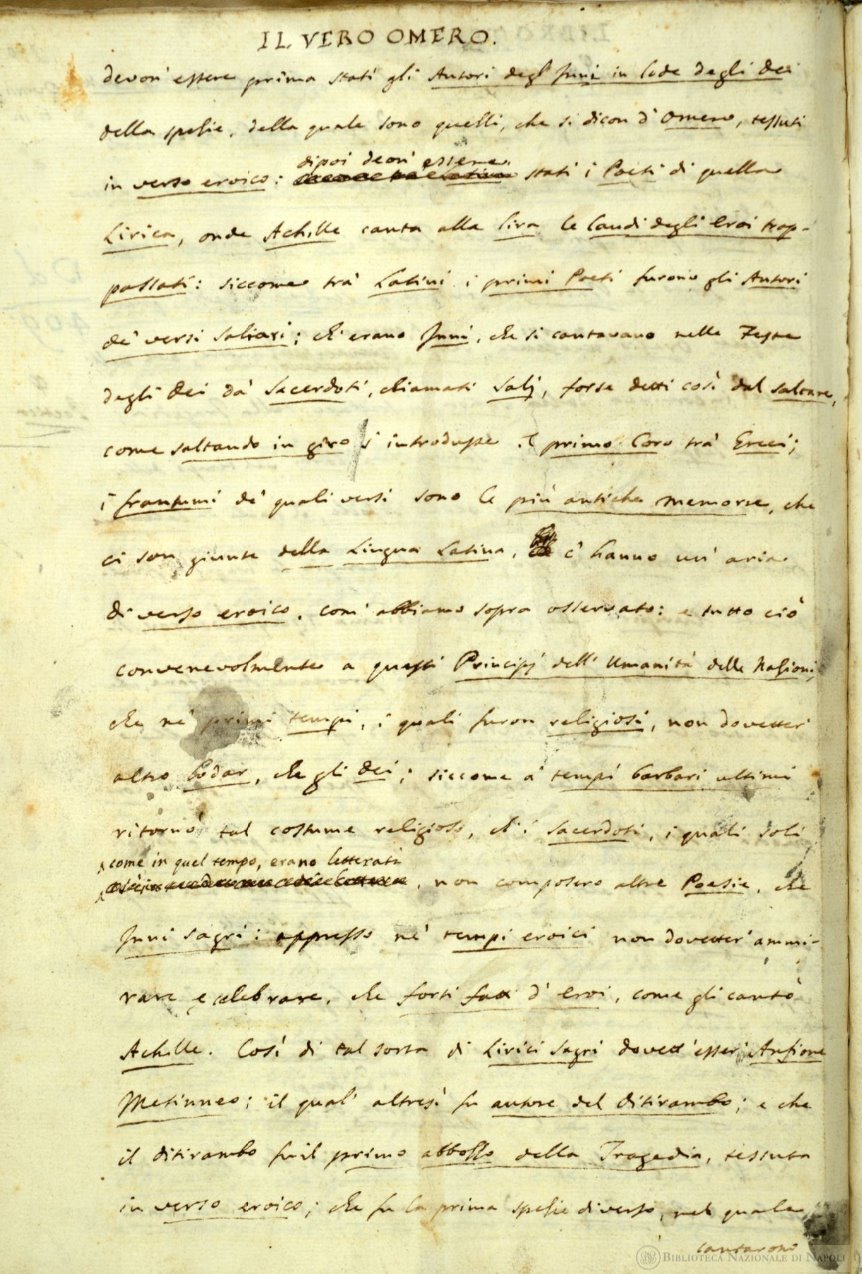 IL VERO OMERO.
devon' essere prima stati gli Autori degl' Inni in lode degli Dei
della spezie, della quale sono quelli, che si dicon d' Omero, tessuti
dipoi deon' essere
in verso eroico: stati i Poeti di quella
Lirica, onde Achille canta alla lira le laudi degli Eroi trap-
passati: siccome tra' Latini i primi Poeti furono gli Autori
de' versi Saliari; ch' erano Inni, che si cantavano nelle Feste
degli Dei da' Sacerdoti, chiamati Salj, forse detti così dal saltare,
come saltando in giro s' introdusse il primo Coro tra' Greci;
i frantumi de' quali versi sono le più antiche memorie, che
ci son giunte della Lingua Latina, c' hanno un' aria
di verso eroico, com' abbiamo sopra osservato: e tutto ciò
convenevolmente a questi Principj dell' Umanità delle Nazioni,
che ne' primi tempi, i quali furon religiosi, non dovetter'
altro lodar, che gli Dei; siccome a' tempi barbari ultimi
ritornò tal costume religioso, ch' i Sacerdoti, i quali soli
come in quel tempo, erano letterati
, non composero altre Poesie, che
Inni sagri: appresso ne' tempi eroici non dovetter' ammi-
rare e celebrare, che forti fatti d' Eroi, come gli cantò
Achille. Così di tal sorta di Lirici Sagri dovett' esser Anfione
Metinneo; il qual' altresì fu autore del Ditirambo; e che
il ditirambo fu il primo abbozzo della Tragedia, tessuta
in verso eroico; che fu la prima spezie di verso, nel quale
cantarono
BIBLIOTECA NAZIONALE DI NAPOLI